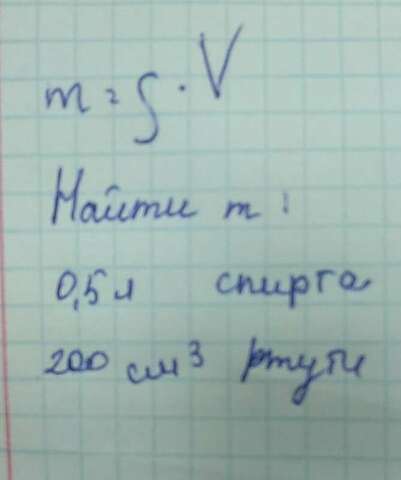 m = ρ · V
Найти m:
0,5 л спирта
200 см³ ртути